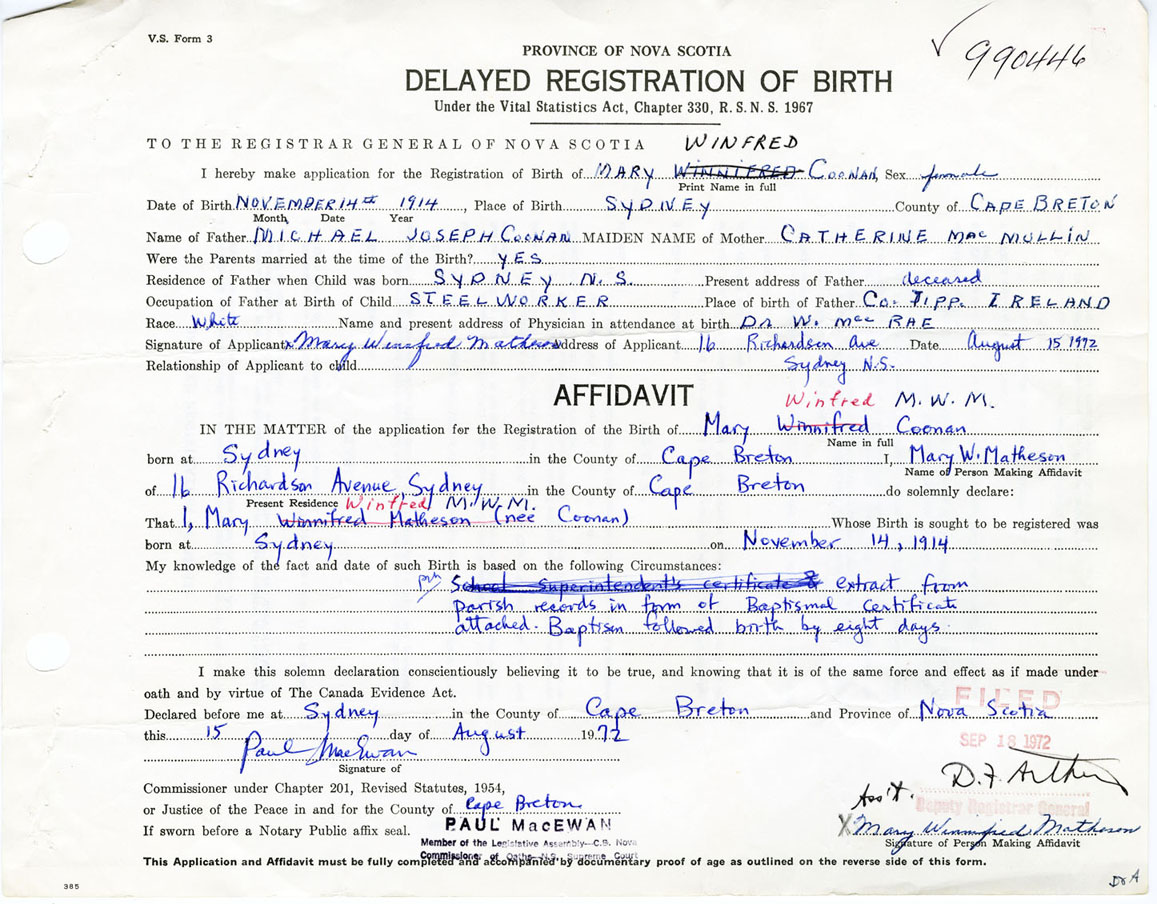 V.S. Form 3
990446
PROVINCE OF NOVA SCOTIA
DELAYED REGISTRATION OF BIRTH
Under the Vital Statistics Act, Chapter 330, R. S. N. S. 1967
TO THE REGISTRAR GENERAL OF NOVA SCOTIA WINFRED
I hereby make application for the Registration of Birth of MARY WINNIFRED COONAN, Sex female
Print Name in full
Date of Birth NOVEMBER 14th 1914, Place of Birth SYDNEY County of CAPE BRETON
Month, Date Year
Name of Father MICHAEL JOSEPH COONAN MAIDEN NAME of Mother CATHERINE MAC MULLIN
Were the Parents married at the time of the Birth? YES
Residence of Father when Child was born SYDNEY N. S. Present address of Father deceased
Occupation of Father at Birth of Child STEELWORKER Place of birth of Father CO. TIPP. IRELAND
Race White Name and present address of Physician in attendance at birth DR W. Mac RAE
Signature of Applicant x Mary Winnfred Matheson Address of Applicant 16 Richardson Ave Date August 15 1972
Relationship of Applicant to child Sydney N.S.
AFFIDAVIT
Winfred M. W. M.
IN THE MATTER of the application for the Registration of the Birth of Mary Winnifred Coonan
Name in full
born at Sydney in the County of Cape Breton I, Mary W. Matheson
Name of Person Making Affidavit
of 16 Richardson Avenue, Sydney in the County of Cape Breton do solemnly declare:
Present Residence Winfred M.W.M.
That I, Mary Winnifred Matheson (neé Coonan) Whose Birth is sought to be registered was
born at Sydney on November 14, 1914
My knowledge of the fact and date of such Birth is based on the following Circumstances:
School Superintendent's certificate & extract from
parish records in form of Baptismal Certificate
attached. Baptism followed birth by eight days
I make this solemn declaration conscientiously believing it to be true, and knowing that it is of the same force and effect as if made under
oath and by virtue of The Canada Evidence Act.
FILED
Declared before me at Sydney in the County of Cape Breton and Province of Nova Scotia
this 15 day of August 1972
SEP 18 1972
Paul MacEwan
Signature of
D. F. Arthur
Commissioner under Chapter 201, Revised Statutes, 1954,
Ass't. Deputy Registrar General
or Justice of the Peace in and for the County of Cape Breton
If sworn before a Notary Public affix seal. PAUL MacEWAN
X Mary Winnifred Matheson
Signature of Person Making Affidavit
Member of the Legislative Assembly—C.B. Nova
Commissioner of Oaths—N.S. Supreme Court
This Application and Affidavit must be fully completed and accompanied by documentary proof of age as outlined on the reverse side of this form.
385